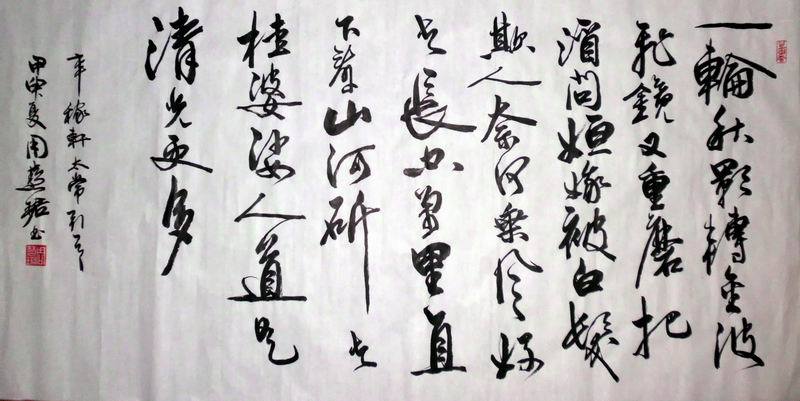 一輪秋影轉金波
飛鏡又重磨把
酒問姮娥被白髮
欺人奈何乘風好
去長空萬里直
下看山河斫去
桂婆娑人道是
清光更多
辛稼軒太常引
甲申夏周慧珺书